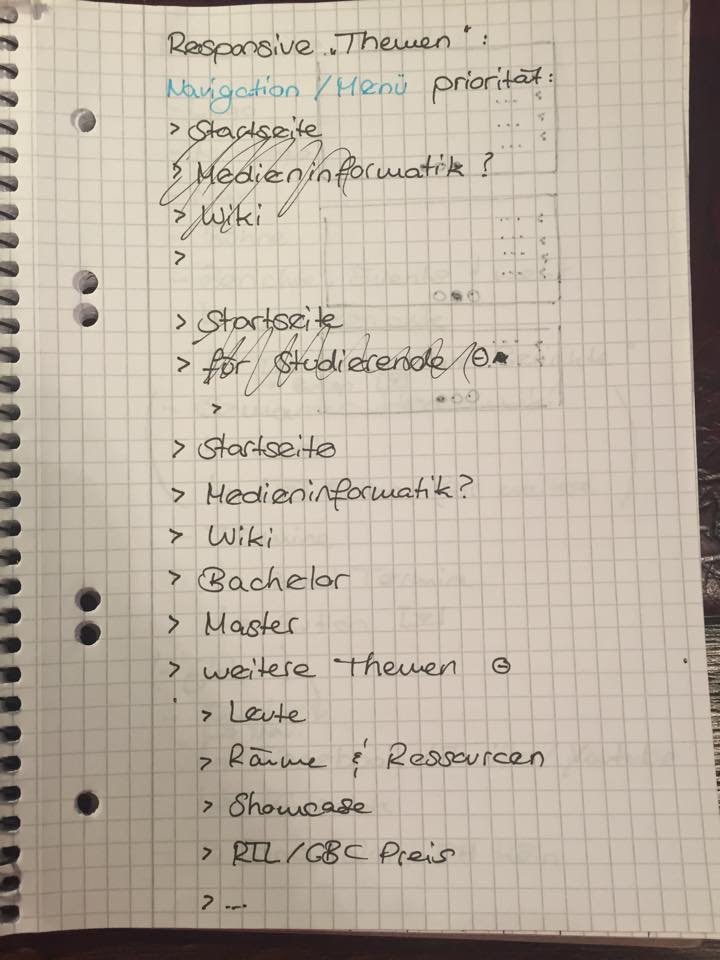 Responsive „Themen":
Navigation / Menü priorität:
> Startseite
> Medieninformatik ?
> Wiki
>
> Startseite
> für Studierende ⊖
>
> Startseite
> Medieninformatik?
> Wiki
> Bachelor
> Master
> weitere Themen ⊖
> Leute
> Räume & Ressourcen
> Showcase
> RTL/GBC Preis
> ...